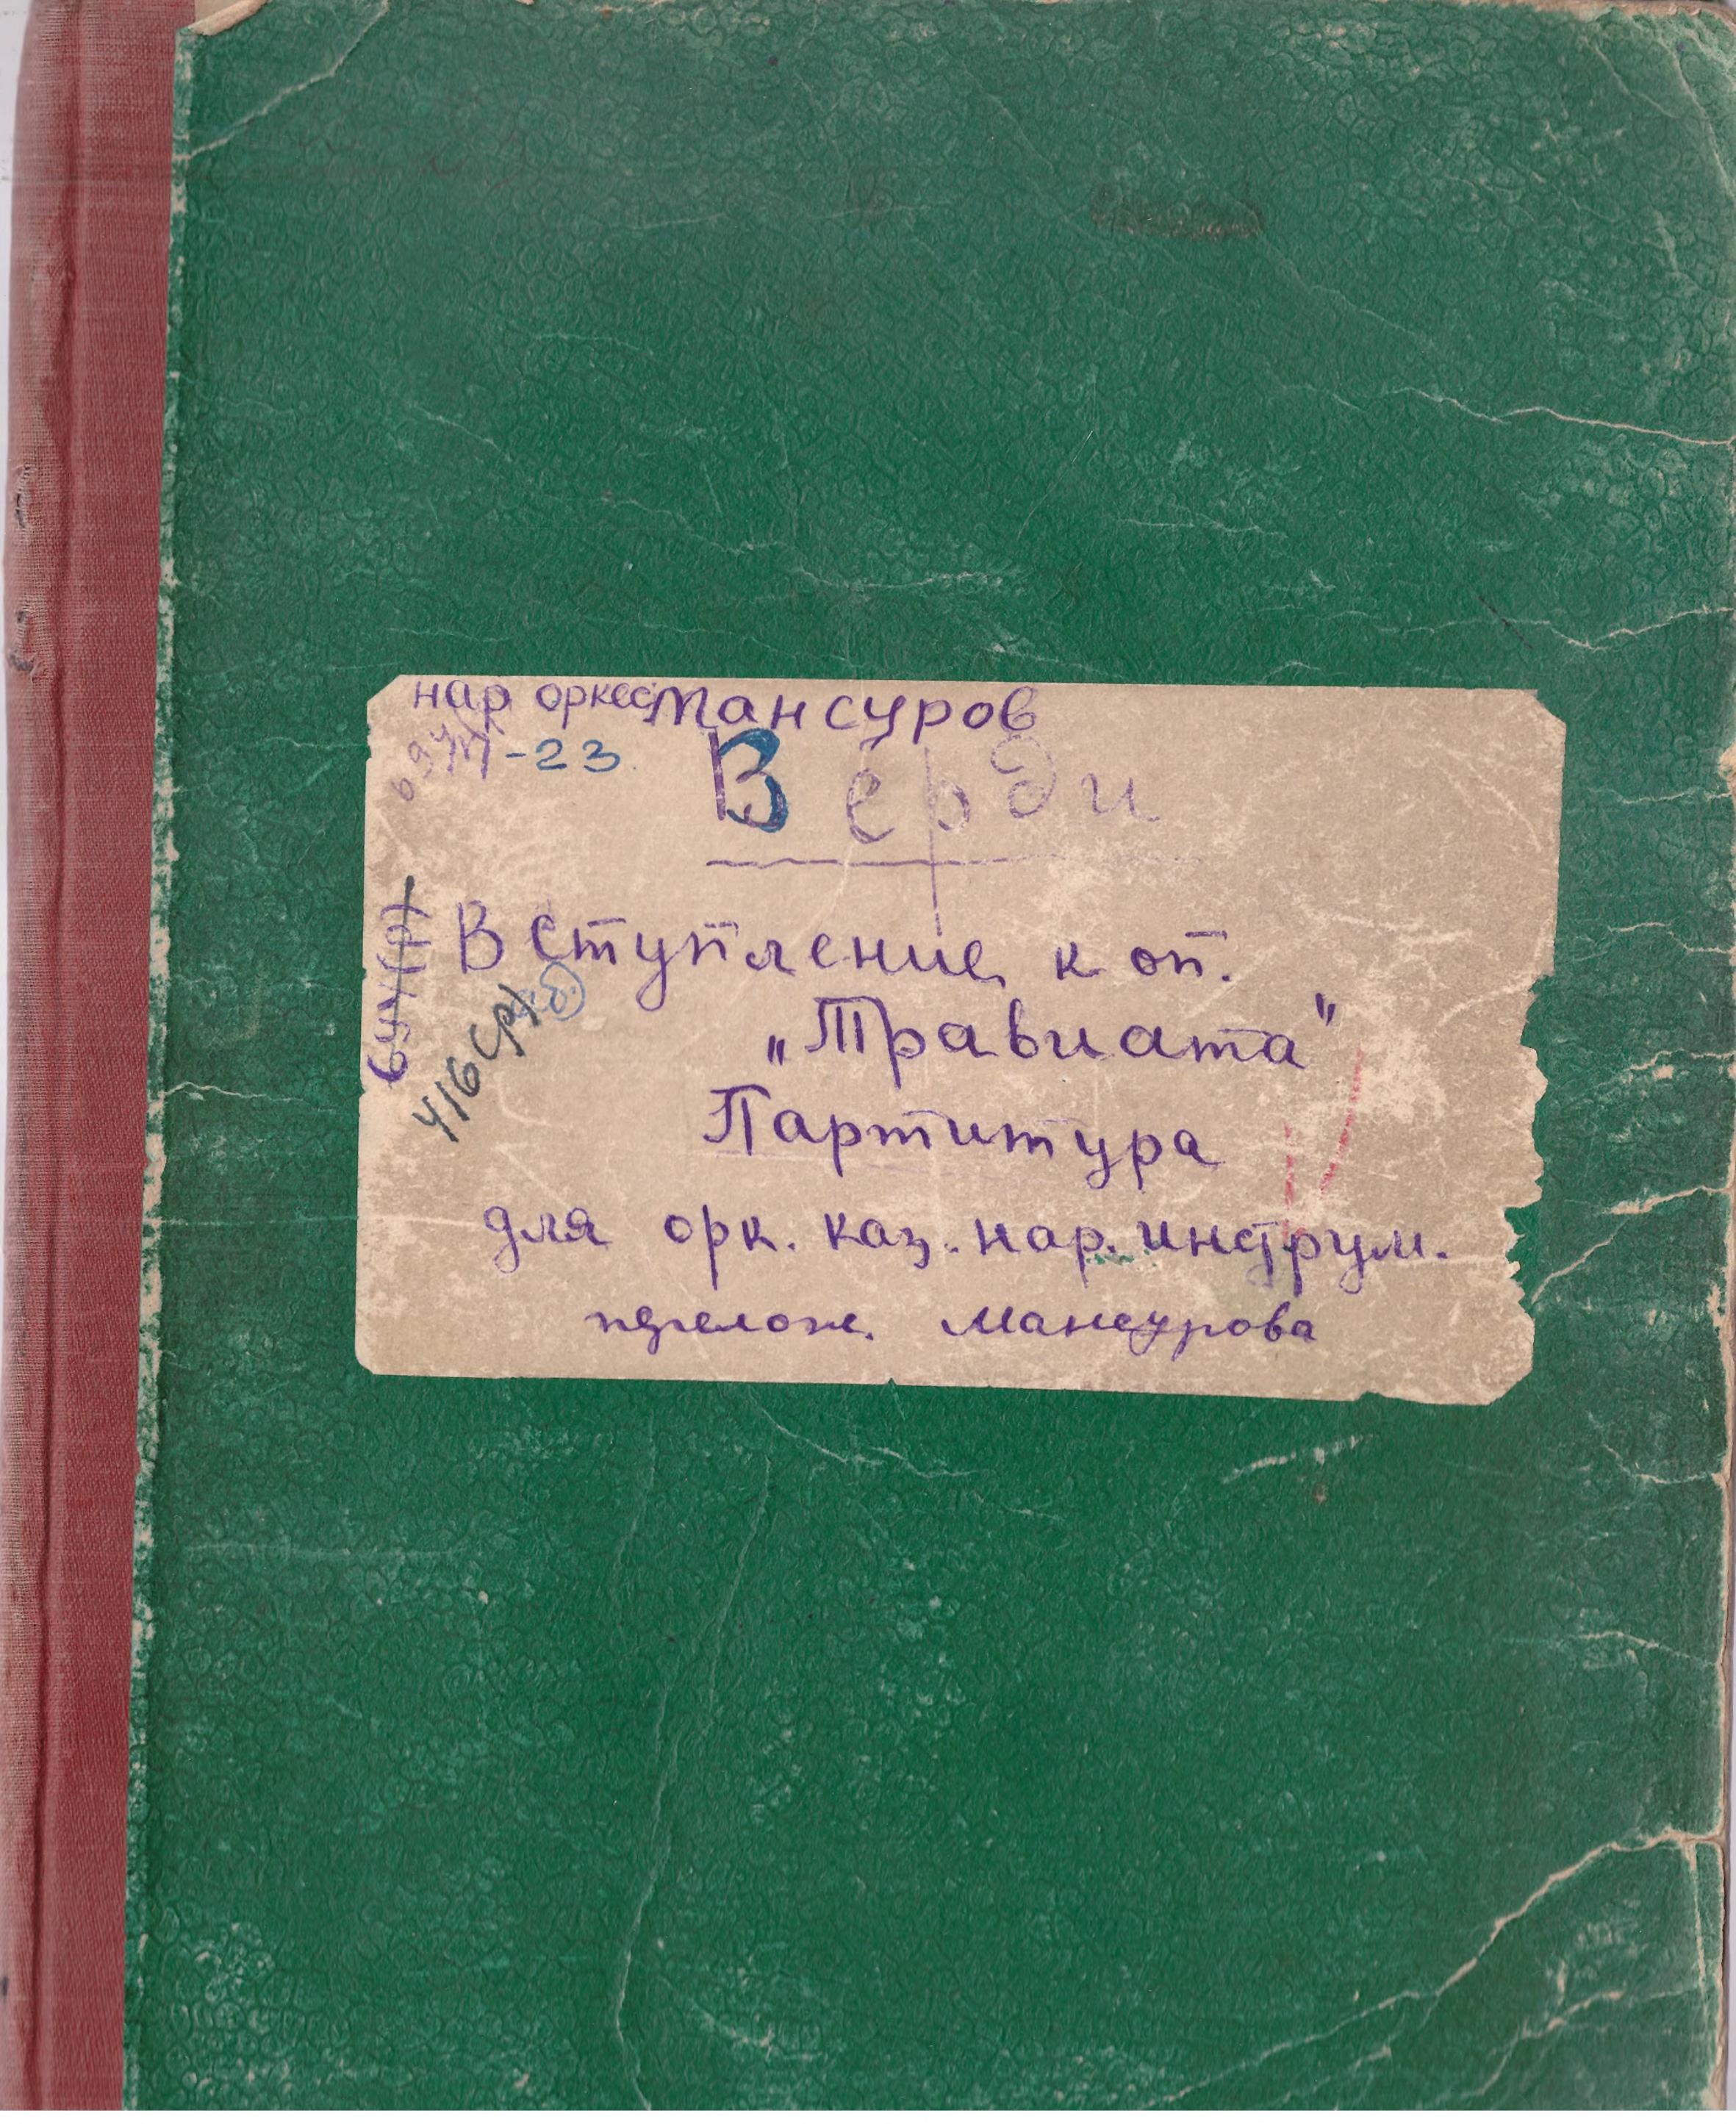 нар оркес Мансуров
-23
Верди
Вступление к оп.
„Травиата"
Партитура
для орк. каз. нар. инструм.
перелож. Мансурова
416 (р)